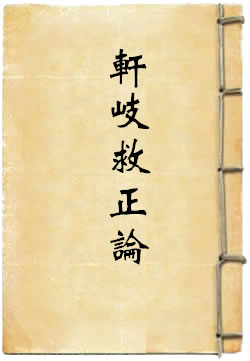 軒岐救正論